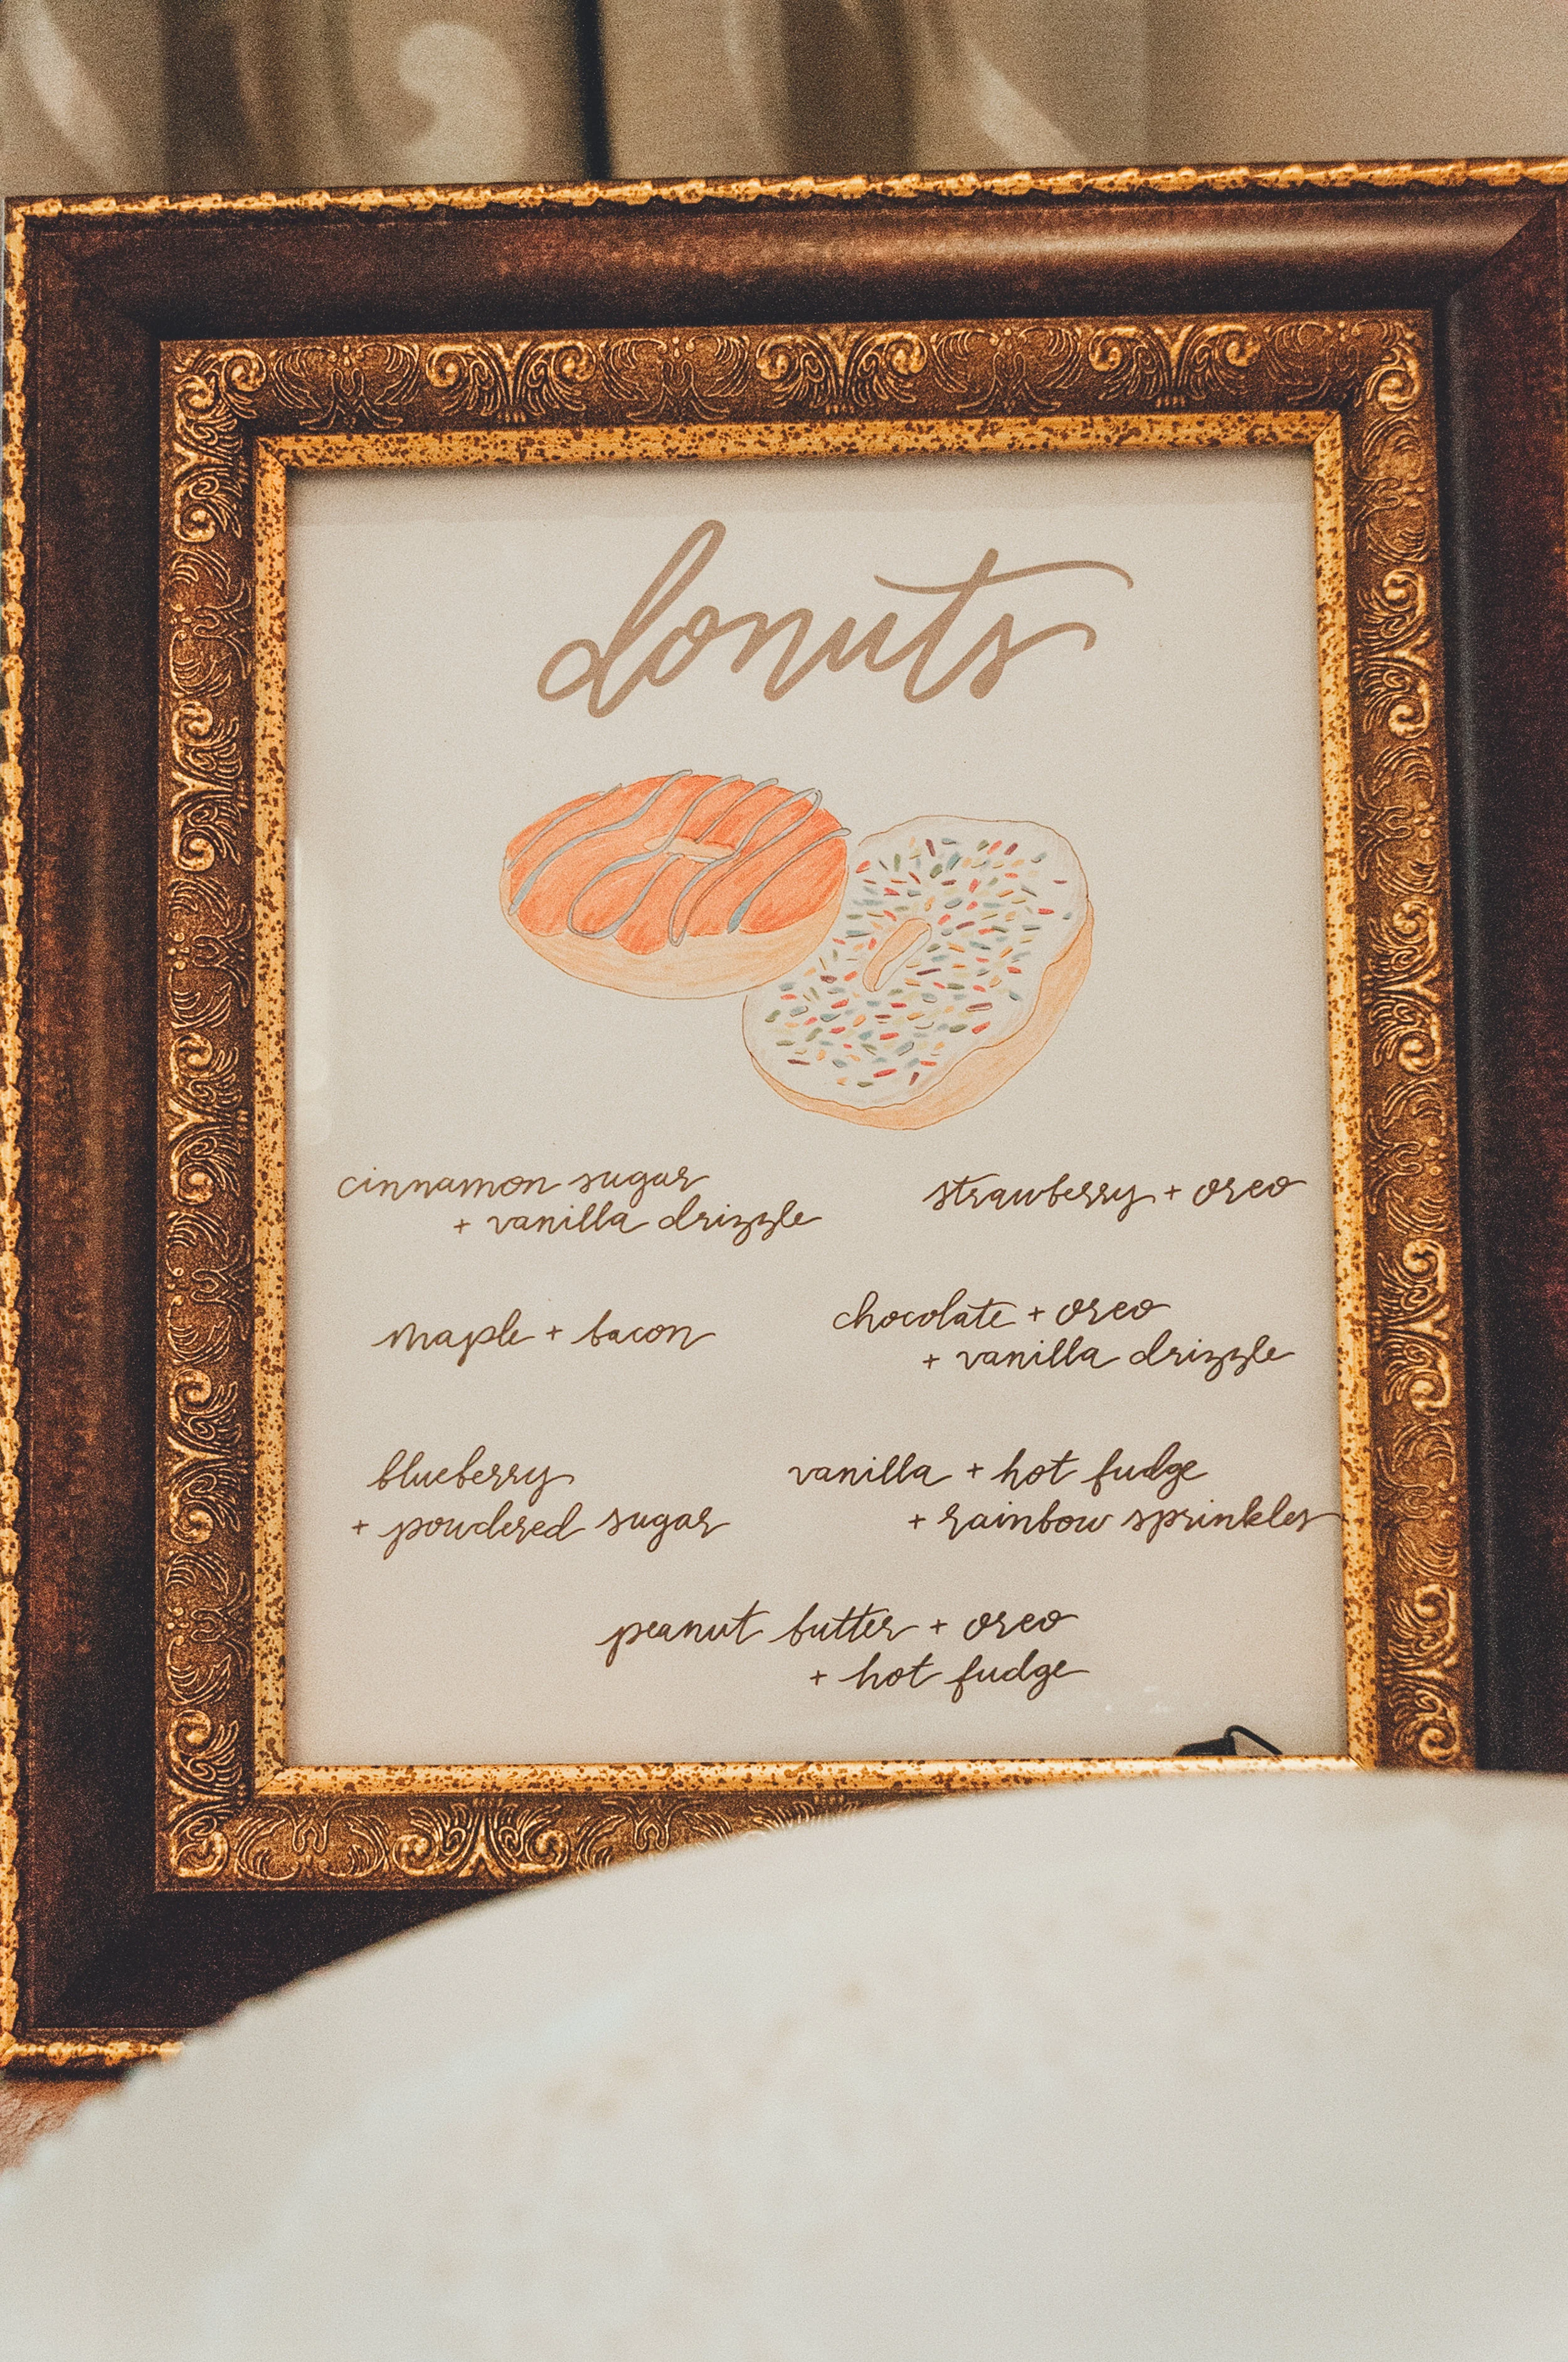 donuts
cinnamon sugar
+ vanilla drizzle
strawberry + oreo
maple + bacon
chocolate + oreo
+ vanilla drizzle
blueberry
+ powdered sugar
vanilla + hot fudge
+ rainbow sprinkles
peanut butter + oreo
+ hot fudge